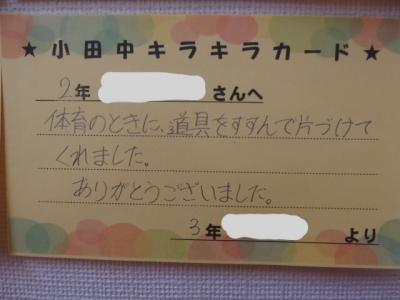 ★小田中キラキラカード★
2年 さんへ
体育のときに、道具をすすんで片づけて
くれました。
ありがとうございました。
3年 より